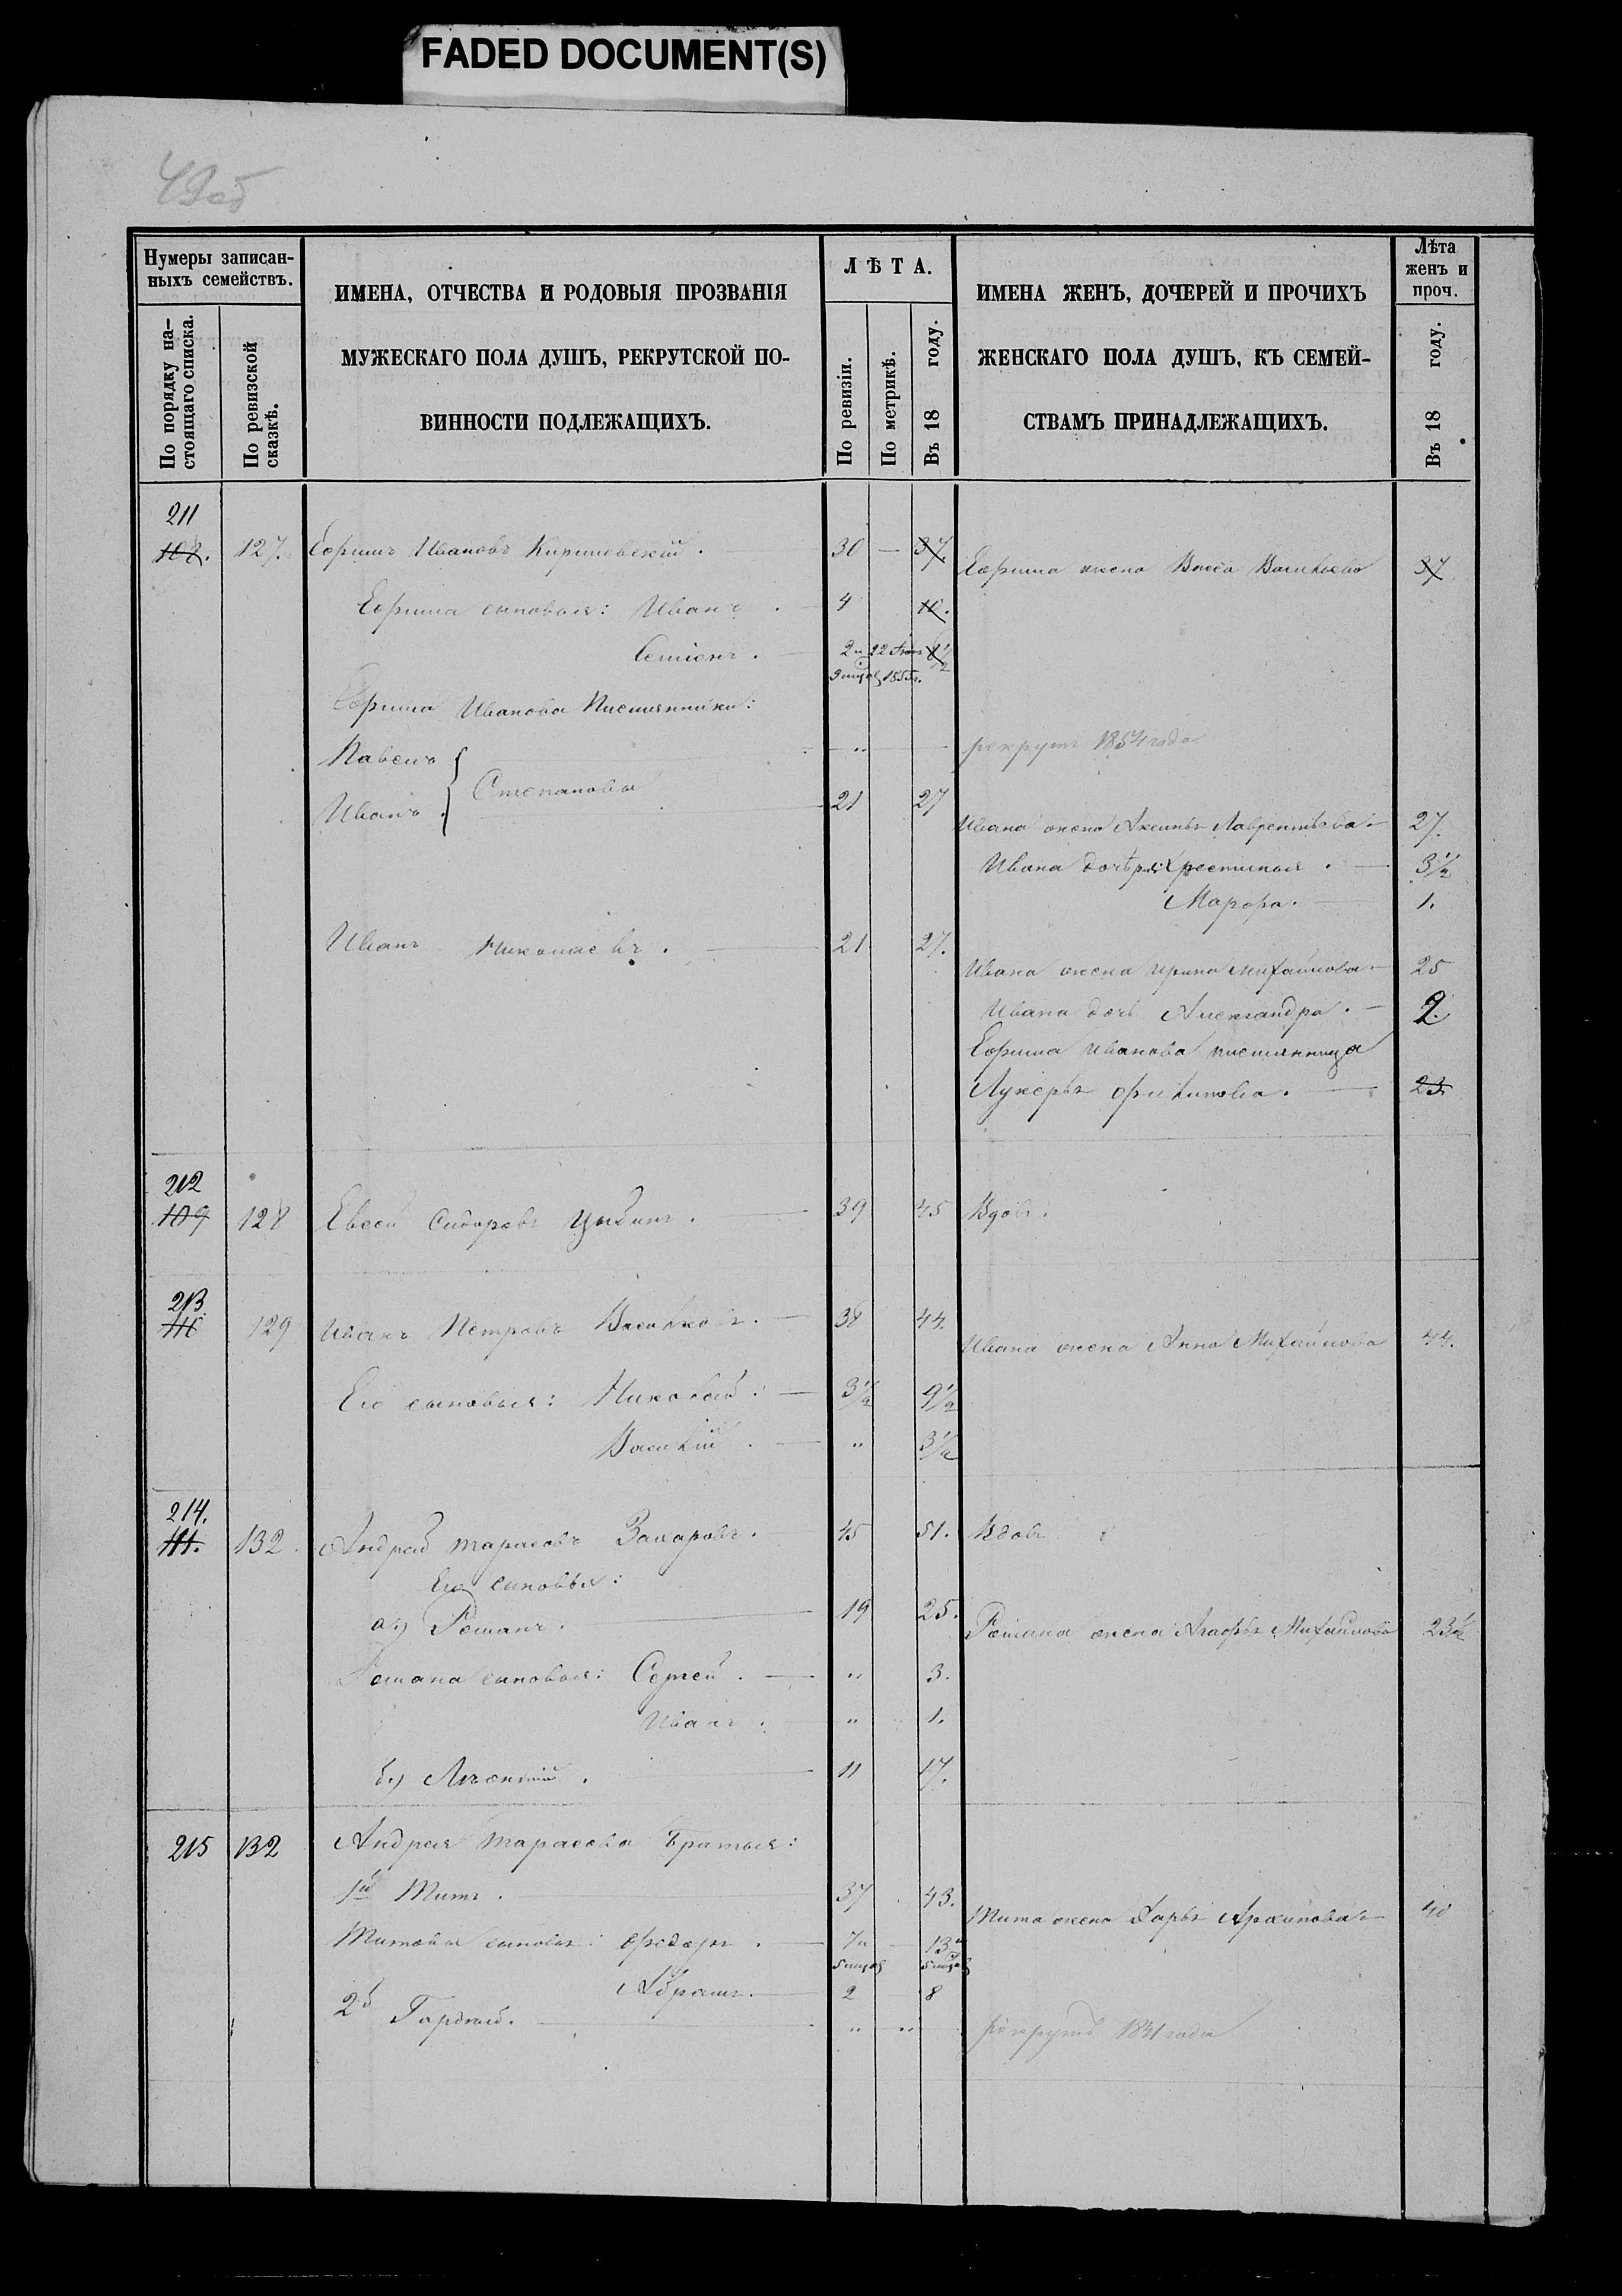 FADED DOCUMENT(S)
49об
Нумеры записан-
ныхъ семействъ.
По порядку на-
стоящаго списка.
По ревизской
сказкѣ.
ИМЕНА, ОТЧЕСТВА И РОДОВЫЯ ПРОЗВАНІЯ
МУЖЕСКАГО ПОЛА ДУШЪ, РЕКРУТСКОЙ ПО-
ВИННОСТИ ПОДЛЕЖАЩИХЪ.
ЛѢТА.
По ревизіи.
По метрикѣ.
Въ 18 году.
ИМЕНА ЖЕНЪ, ДОЧЕРЕЙ И ПРОЧИХЪ
ЖЕНСКАГО ПОЛА ДУШЪ, КЪ СЕМЕЙ-
СТВАМЪ ПРИНАДЛЕЖАЩИХЪ.
Лѣта
женъ и
проч.
Въ 18 году.
211
108. 127. Ефимъ Ивановъ 30 — 37.
Ефима жена Васса Васильева 37
Ефима сыновья: Иванъ . 4 10.
Семіонъ . 2 и 22 6 1/2
9 мцов 1855г.
Ефима Иванова Племянники:
Павелъ " рекрутъ 1854 года
Степановы
Иванъ . 21 27
Ивана жена Аксинья Лаврентьева 27.
Ивана дочери: Хрестинья . 3 1/2
Марфа. 1.
Иванъ Николаевъ . 21 27.
Ивана жена Ирина Михайлова 25
Ивана дочь Александра . 2.
Ефима Иванова племянница
Лукерья Филипова . 23
212
109 128 Евсей Сидоровъ Цыбинъ . 39 45 Вдовъ.
213.
110 129 Иванъ Петровъ Васильковъ. 38 44.
Ивана жена Анна Михайлова 44.
Его сыновья: Николай . 3 1/2 9 1/2
Василій . " 3 1/2
214.
111. 132. Андрей Тарасовъ Захаровъ. 45 51. Вдовъ
Его сыновья:
а.) Романъ. 19 25.
Романа жена Агафья Михайлова 23 1/2
Романа сыновья: Сергей . " 3.
Иванъ . " 1.
б.) . 11 17.
215 132 Андрея Тарасова Братья:
1й Титъ . 37 43.
Тита жена Дарья Архипова 40
Титовы сыновья: Федоръ . 7 и 13 и
5 мцов 5 мцов
Абрамъ. 2 8
2й Гордей. " " рекрутъ 1841 года